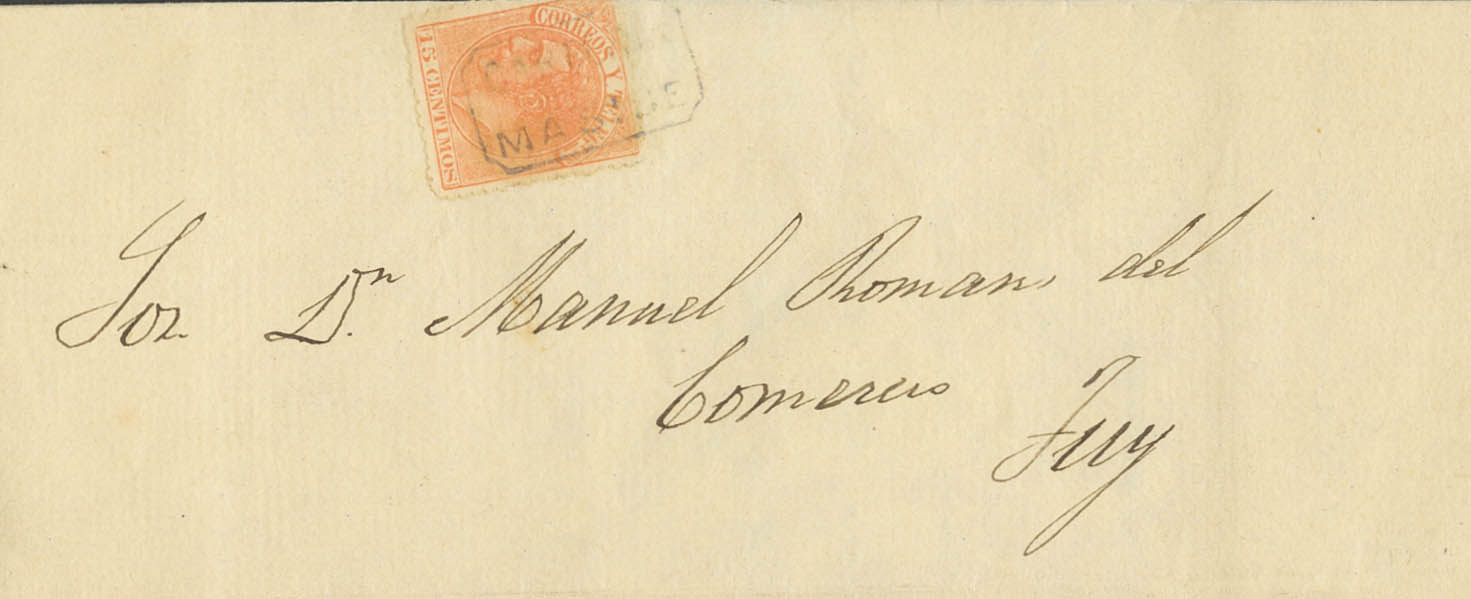 CORREOS Y TELEGF
15 CENTIMOS
Sor. Dn. Manuel Romano del
Comercio
Tuy